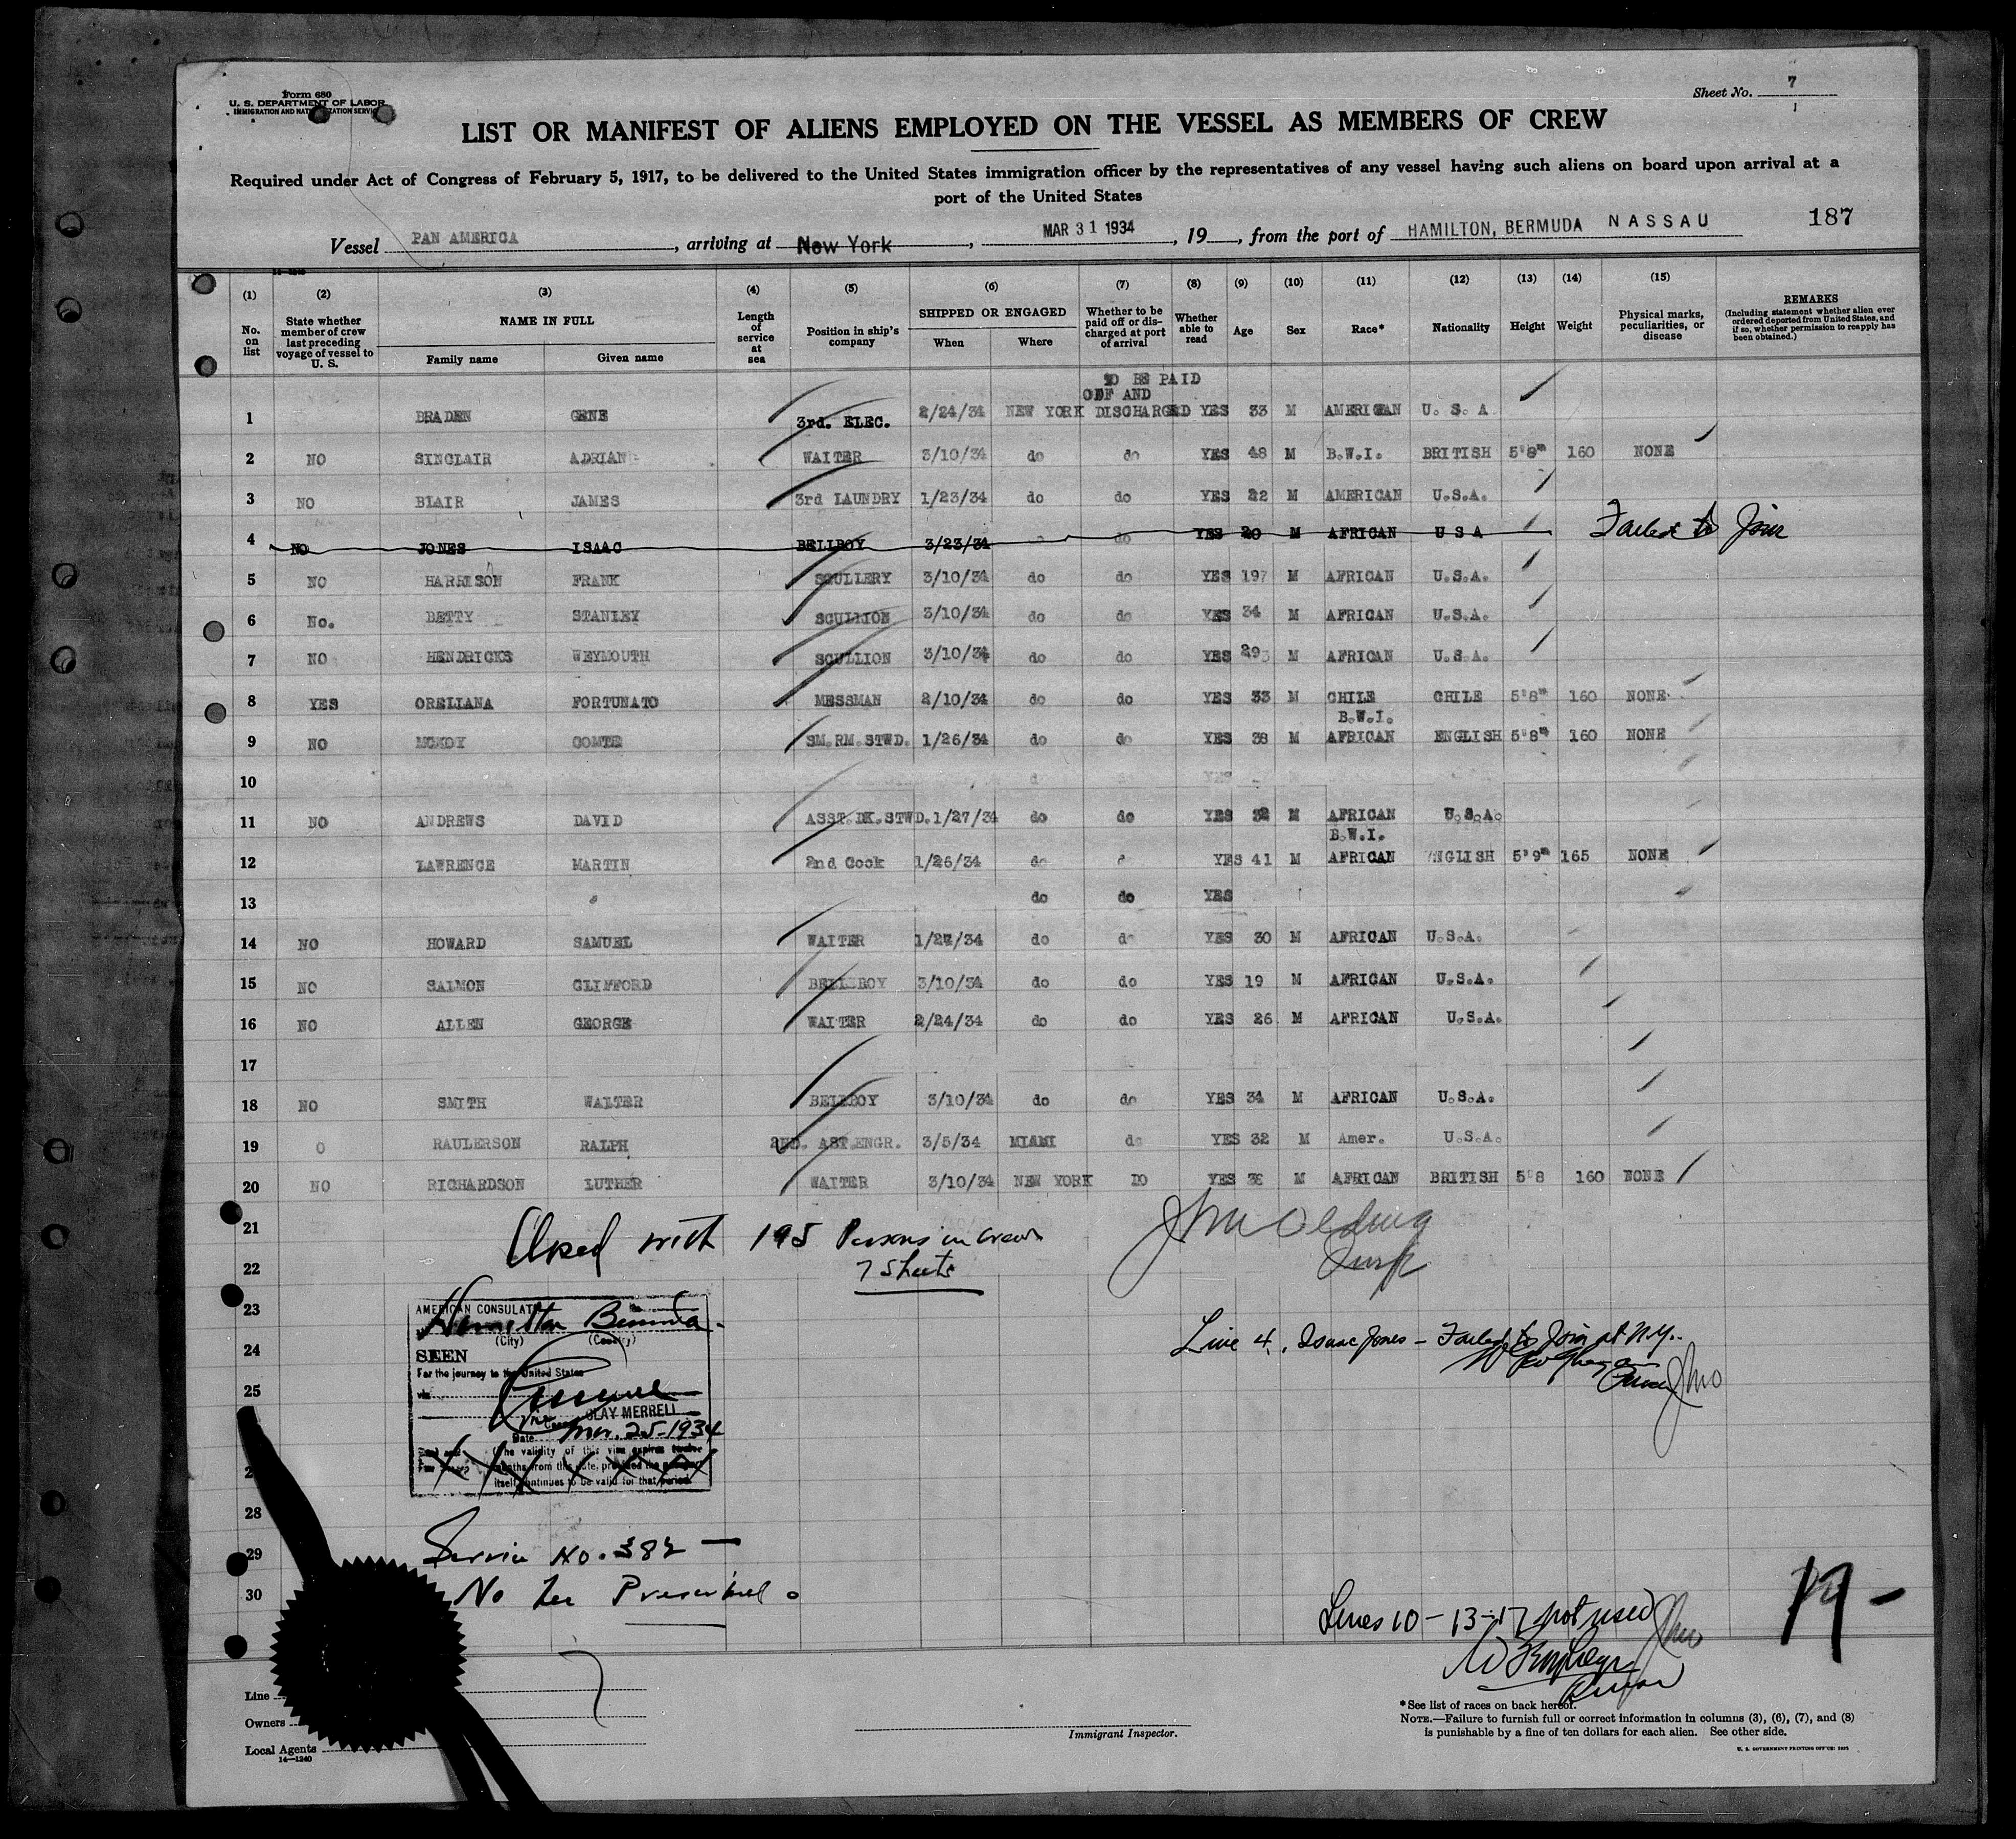 Form 680
U. S. DEPARTMENT OF LABOR
IMMIGRATION AND NATURALIZATION SERVICE
Sheet No. 7
LIST OR MANIFEST OF ALIENS EMPLOYED ON THE VESSEL AS MEMBERS OF CREW
Required under Act of Congress of February 5, 1917, to be delivered to the United States immigration officer by the representatives of any vessel having such aliens on board upon arrival at a
port of the United States
187
Vessel PAN AMERICA, arriving at New York, MAR 31 1934, 19, from the port of HAMILTON, BERMUDA NASSAU
(1) (2) (3) (4) (5) (6) (7) (8) (9) (10) (11) (12) (13) (14) (15)
No. on list
State whether member of crew last preceding voyage of vessel to U. S.
NAME IN FULL
Family name
Given name
Length of service at sea
Position in ship's company
SHIPPED OR ENGAGED
When
Where
Whether to be paid off or discharged at port of arrival
Whether able to read
Age
Sex
Race*
Nationality
Height
Weight
Physical marks, peculiarities, or disease
REMARKS
(Including statement whether alien ever ordered deported from United States, and if so, whether permission to reapply has been obtained.)
TO BE PAID
OFF AND
1 BRADEN GENE 3rd. ELEC. 2/24/34 NEW YORK DISCHARGED YES 33 M AMERICAN U. S. A
2 NO SINCLAIR ADRIAN WAITER 3/10/34 do do YES 48 M B.W.I. BRITISH 5'8" 160 NONE
3 NO BLAIR JAMES 3rd LAUNDRY 1/23/34 do do YES 22 M AMERICAN U.S.A.
4 NO JONES ISAAC BELLBOY 3/23/34 do YES 20 M AFRICAN U S A Failed to Join
5 NO HARRISON FRANK SCULLERY 3/10/34 do do YES 197 M AFRICAN U.S.A.
6 No. BETTY STANLEY SCULLION 3/10/34 do do YES 34 M AFRICAN U.S.A.
7 NO HENDRICKS WEYMOUTH SCULLION 3/10/34 do do YES 293 M AFRICAN U.S.A.
8 YES ORELLANA FORTUNATO MESSMAN 2/10/34 do do YES 33 M CHILE CHILE 5'8" 160 NONE
B.W.I.
9 NO MCKOY COMTE SM.RM.STWD. 1/26/34 do do YES 38 M AFRICAN ENGLISH 5'8" 160 NONE
10 YES
11 NO ANDREWS DAVID ASST.DK.STWD. 1/27/34 do do YES 32 M AFRICAN U.S.A.
B.W.I.
12 LAWRENCE MARTIN 2nd Cook 1/26/34 do do YES 41 M AFRICAN ENGLISH 5'9" 165 NONE
13 do do YES
14 NO HOWARD SAMUEL WAITER 1/27/34 do do YES 30 M AFRICAN U.S.A.
15 NO SALMON CLIFFORD BELLBOY 3/10/34 do do YES 19 M AFRICAN U.S.A.
16 NO ALLEN GEORGE WAITER 2/24/34 do do YES 26 M AFRICAN U.S.A.
17
18 NO SMITH WALTER BELLBOY 3/10/34 do do YES 34 M AFRICAN U.S.A.
19 O RAULERSON RALPH 2ND. AST.ENGR. 3/5/34 MIAMI do YES 32 M Amer. U.S.A.
20 NO RICHARDSON LUTHER WAITER 3/10/34 NEW YORK DO YES 38 M AFRICAN BRITISH 5'8 160 NONE
21
Closed with 195 Persons in crew
22
7 Sheets
23
AMERICAN CONSULATE
Hamilton Bermuda.
(City) (Country)
24
Line 4, Isaac Jones - Failed to Join at N.Y.
SEEN
For the journey to the United States
25
via
Vice CLAY MERRELL
Date Mar. 25-1934
The validity of this visa expires twelve
months from this date, provided the
itself continues to be valid for that period.
28
Service No. 382 —
29
No fee Prescribed.
30
Lines 10-13-17 not used
19-
Line
Owners
Local Agents
14—1240
Immigrant Inspector.
*See list of races on back hereof.
NOTE.—Failure to furnish full or correct information in columns (3), (6), (7), and (8)
is punishable by a fine of ten dollars for each alien. See other side.